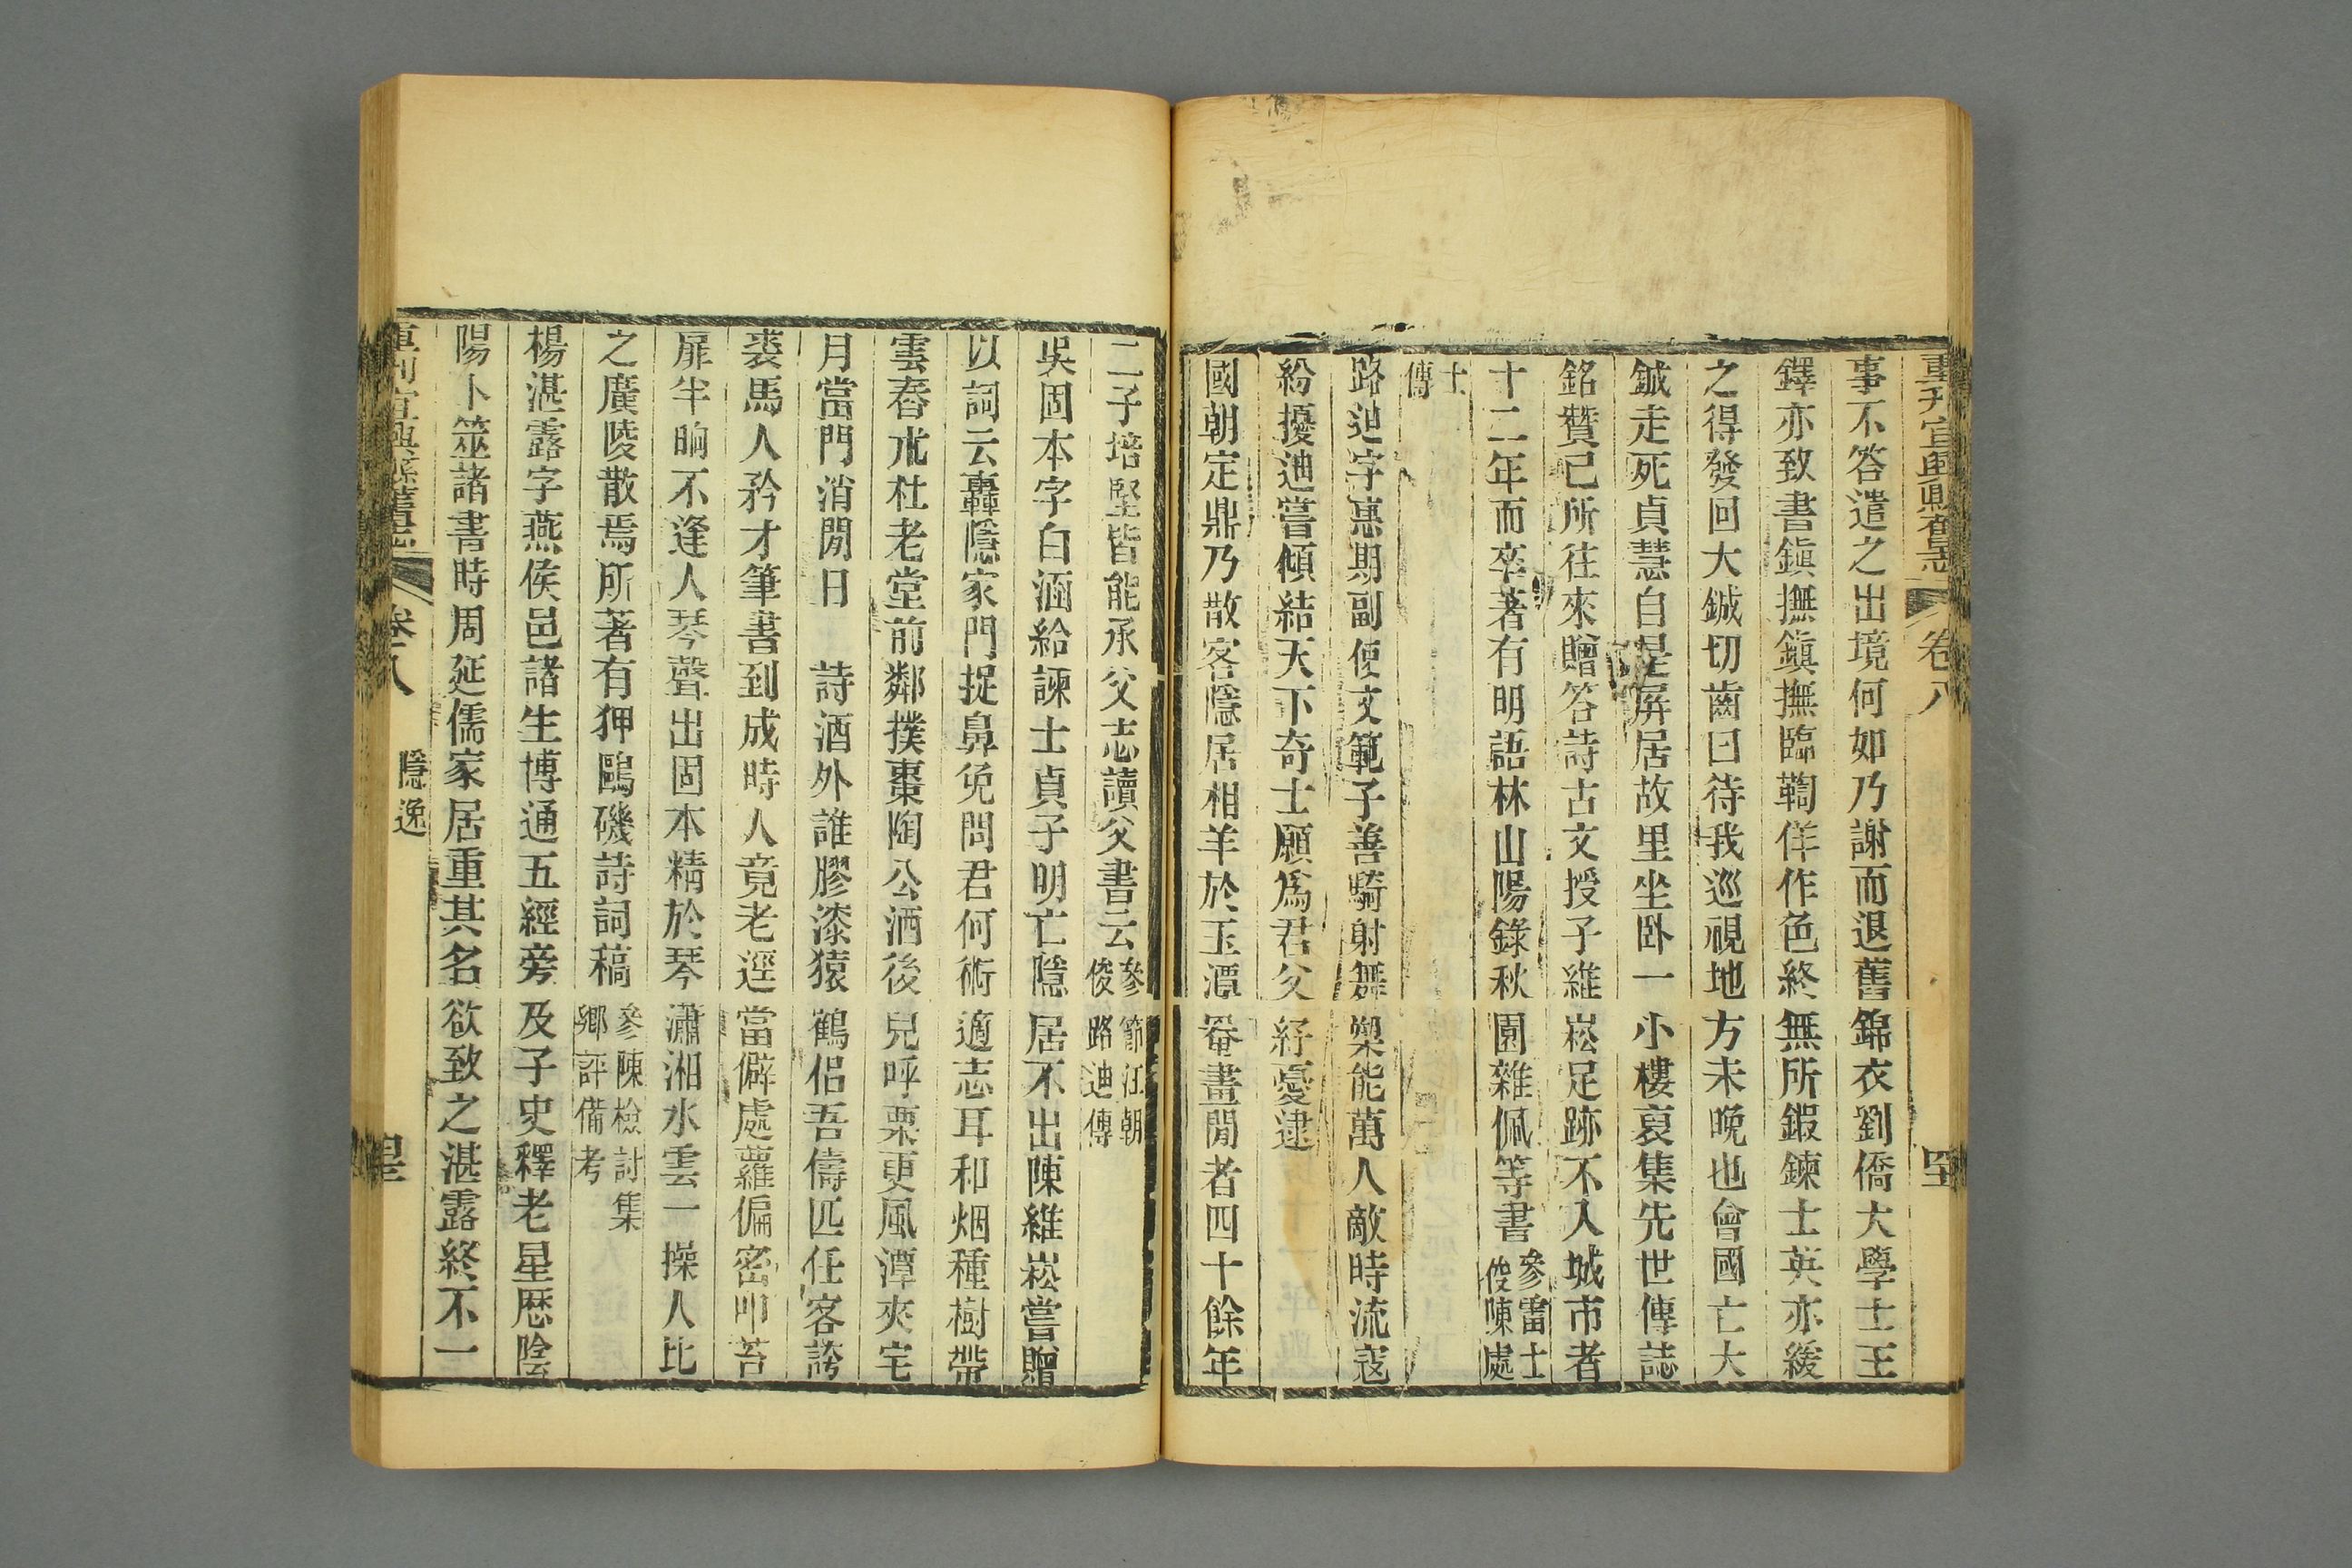 重刋宜興縣舊志 卷八
事不答遣之出境何如乃謝而退舊錦衣劉僑大學士王
鐸亦致書鎭撫鎭撫臨鞫佯作色終無所鍜鍊士英亦緩
之得發回大鋮切齒曰待我巡視地方未晚也會國亡大
鋮走死貞慧自是屏居故里坐卧一小樓裒集先世傳誌
銘贊已所往來贈答詩古文授子維崧足跡不入城市者
十二年而卒著有明語林山陽錄秋園雜佩等書參雷士
俊陳處
士
傳
路迪字惠期副使文範子善騎射舞槊能萬人敵時流寇
紛擾迪嘗傾結天下奇士願爲君父紓憂逮
國朝定鼎乃散客隱居相羊於玉潭罨畫閒者四十餘年
二子培堅皆能承父志讀父書云參節江朝
俊路迪傳
吳固本字白涵給諫士貞子明亡隱居不出陳維崧嘗贈
以詞云轟隱家門捉鼻免問君何術適志耳和烟種樹帶
雲舂朮杜老堂前鄰撲棗陶公洒後兒呼栗更風潭夾宅
月當門消閒日 詩酒外誰膠漆猿鶴侶吾儔匹任客誇
裘馬人矜才筆書到成時人竟老逕當僻處蘿偏密叩苔
扉半晌不逢人琴聲出固本精於琴瀟湘水雲一操人比
之廣陵散焉所著有狎鷗磯詩詞稿參陳檢討集
鄉評備考
楊湛露字燕侯邑諸生博通五經旁及子史釋老星歷陰
陽卜筮諸書時周延儒家居重其名欲致之湛露終不一
重刋宜興縣舊志 卷八 隱逸